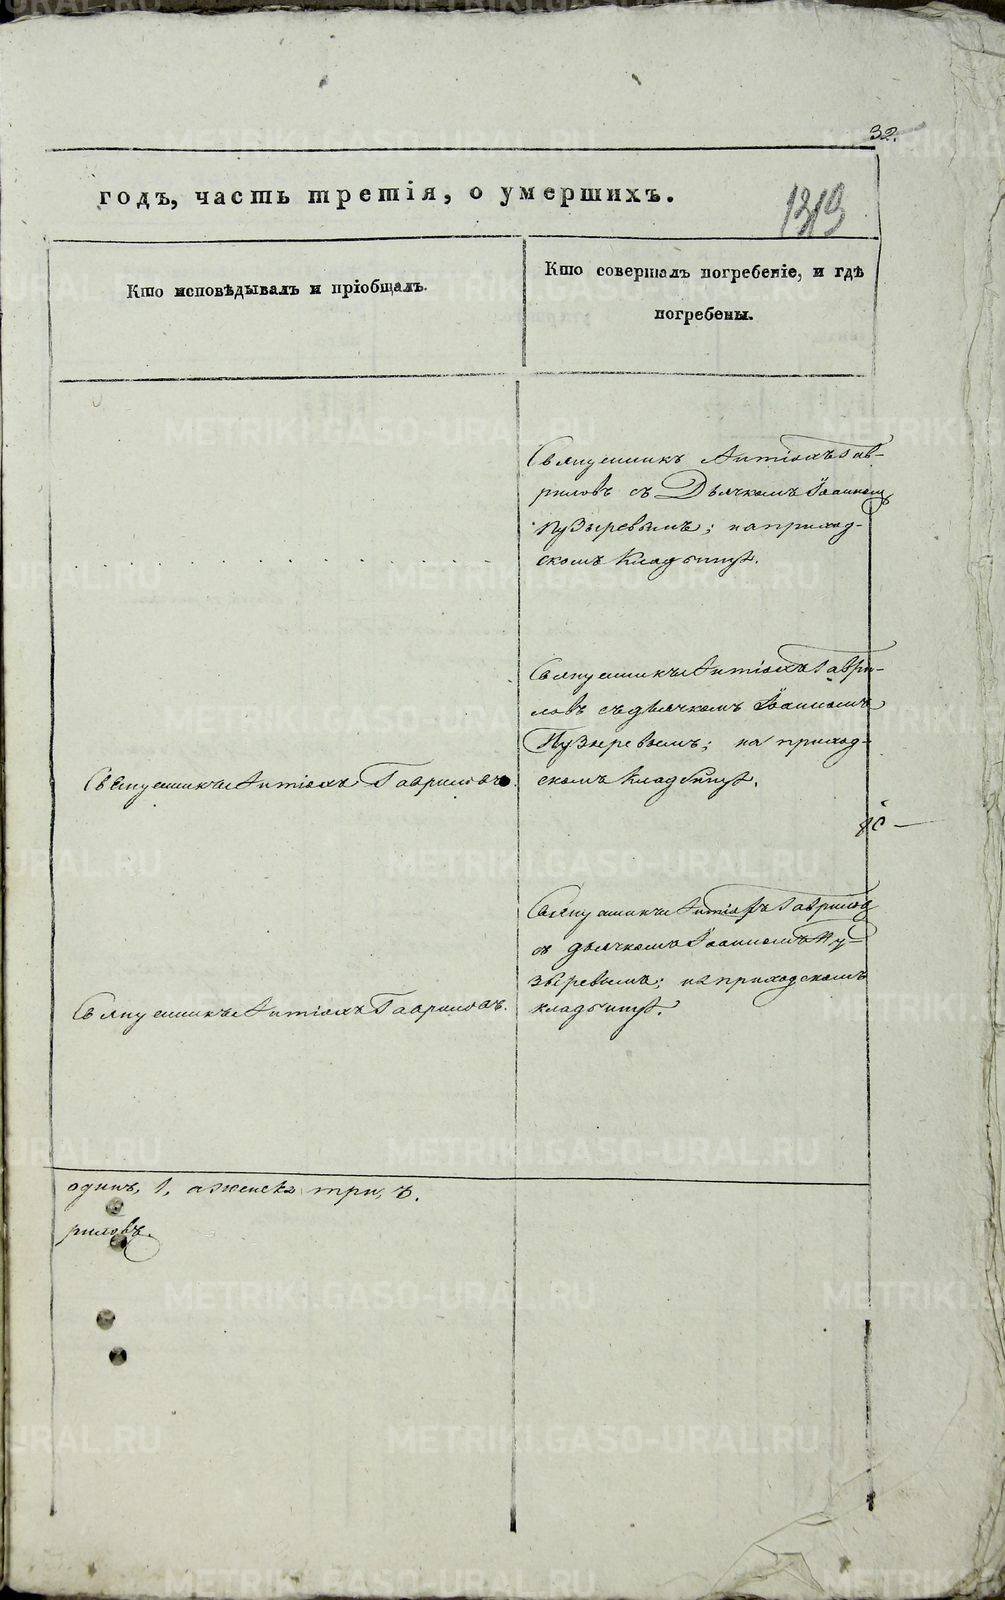 32.
годъ, часть третія, о умершихъ.
1313
Кто исповѣдывалъ и пріобщалъ.
Кто совершалъ погребеніе, и гдѣ
погребены.
Священникъ Антіохъ Гав-
риловъ съ Дьячкомъ Іоанномъ
Пузыревымъ; на приход-
скомъ кладбищѣ.
Священникъ Антіохъ Гаври-
ловъ съ дьячкомъ Іоанномъ
Пузыревымъ; на приход-
скомъ кладбищѣ.
Священникъ Антіохъ Гавриловъ.
Священникъ Антіохъ Гаврилов
съ дьячкомъ Іоанномъ Пу-
зыревымъ; на приходскомъ
кладбищѣ.
Священникъ Антіохъ Гавриловъ.
одинъ, 1, а женска три, 3.
риловъ.
METRIKI.GASO-URAL.RU